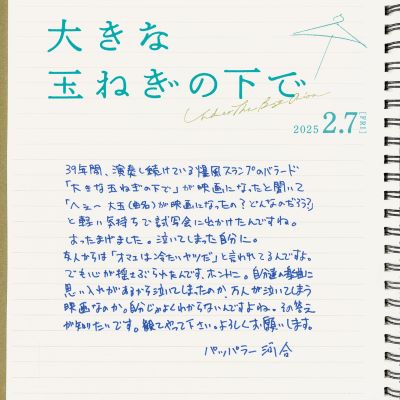 大きな
玉ねぎの下で
Under The Big Onion
2025 2.7 [FRI]
39年間、演奏し続けている爆風スランプのバラード
「大きな玉ねぎの下で」が映画になったと聞いて
「へぇ〜大玉(曲名)が映画になったの?どんなのだろう?」
と軽い気持ちで試写会に出かけたんですね。
おったまげました。泣いてしまった自分に。
友人からは「オマエは冷たいヤツだ」と言われてるんですよ。
でも心が揺さぶられたんです、ホントに。自分達の楽曲に
思い入れがあるから泣いてしまったのか、万人が泣いてしまう
映画なのか。自分じゃよくわからないんですよね。その答え
が知りたいです。観てやって下さい。よろしくお願いします。
パッパラー河合